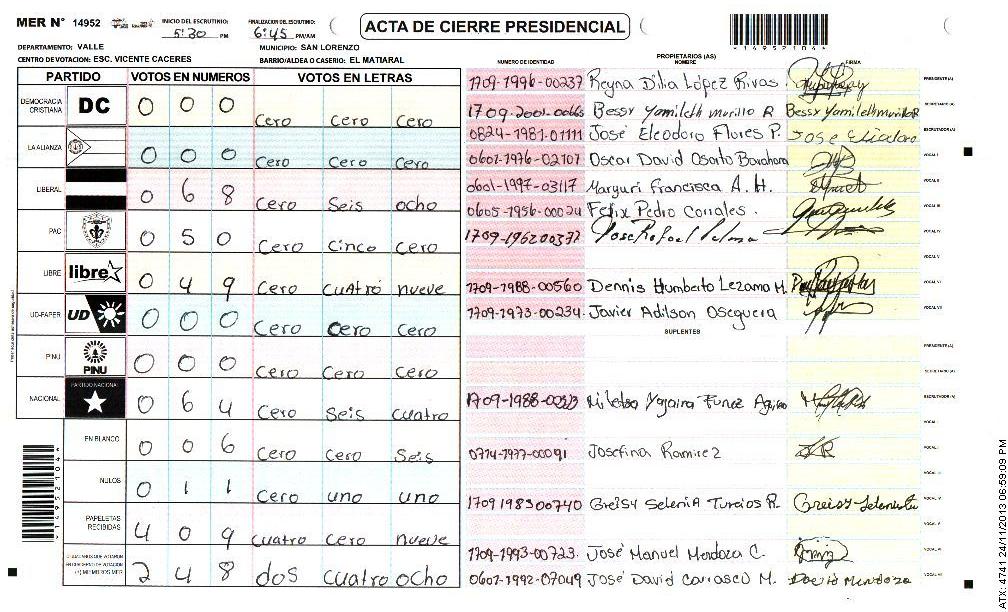 MER N° 14952 INICIO DEL ESCRUTINIO: 5:30 PM FINALIZACION DEL ESCRUTINIO: 6:45 PM/AM
ACTA DE CIERRE PRESIDENCIAL
* 1 4 9 5 2 1 0 4 *
DEPARTAMENTO: VALLE MUNICIPIO: SAN LORENZO
CENTRO DE VOTACION: ESC. VICENTE CACERES BARRIO/ALDEA O CASERIO: EL MATIARAL
PARTIDO VOTOS EN NUMEROS VOTOS EN LETRAS
DEMOCRACIA CRISTIANA DC 0 0 0 Cero Cero Cero
LA ALIANZA 0 0 0 Cero Cero Cero
LIBERAL 0 6 8 Cero Seis ocho
PAC 0 5 0 Cero Cinco Cero
LIBRE libre 0 4 9 Cero cuatro nueve
UD-FAPER UD 0 0 0 Cero Cero Cero
PINU PINU 0 0 0 Cero Cero Cero
NACIONAL PARTIDO NACIONAL 0 6 4 Cero Seis Cuatro
EN BLANCO 0 0 6 Cero Cero Seis
NULOS 0 1 1 Cero uno uno
PAPELETAS RECIBIDAS 4 0 9 cuatro Cero nueve
CIUDADANOS QUE VOTARON EN CUADERNO DE VOTACION (+) MIEMBROS MER 2 4 8 dos cuatro ocho
NUMERO DE IDENTIDAD PROPIETARIOS (AS) NOMBRE FIRMA
1709-1996-00237 Reyna Dilia López Rivas PRESIDENTE (A)
1709-2001-0066 Bessy Yamileth Murillo R Bessy Yamileth murillo R SECRETARIO (A)
0824-1981-01111 José Eleodoro Flores P. Jose Eleodoro ESCRUTADOR (A)
0601-1976-02107 Oscar David Osorto VOCAL I
0601-1997-03117 Maryuri Francisca A. H. VOCAL II
0605-1956-00024 Félix Pedro Corrales. VOCAL III
1709-1962 00377 Jose Rafael VOCAL IV
VOCAL V
1709-1988-00560 Dennis Humberto Lezama M. VOCAL VI
1709-1973-00234 Javier Adilson Oseguera VOCAL VII
SUPLENTES
PRESIDENTE (A)
SECRETARIO (A)
1709-1988-00 Yojaira Funez ESCRUTADOR (A)
VOCAL I
0714-1977-00091 Josefina Ramirez JR VOCAL II
VOCAL III
1709 1983 00740 Greisy Selenia Turcios R. VOCAL IV
VOCAL V
1709-1993-00723. José Manuel Mendoza C. VOCAL VI
0607-1992-07049 José David Carrasco M. David Mendoza VOCAL VII
* 1 4 9 5 2 1 0 4 *
ATX: 4741 24/11/2013 06:59:09 PM